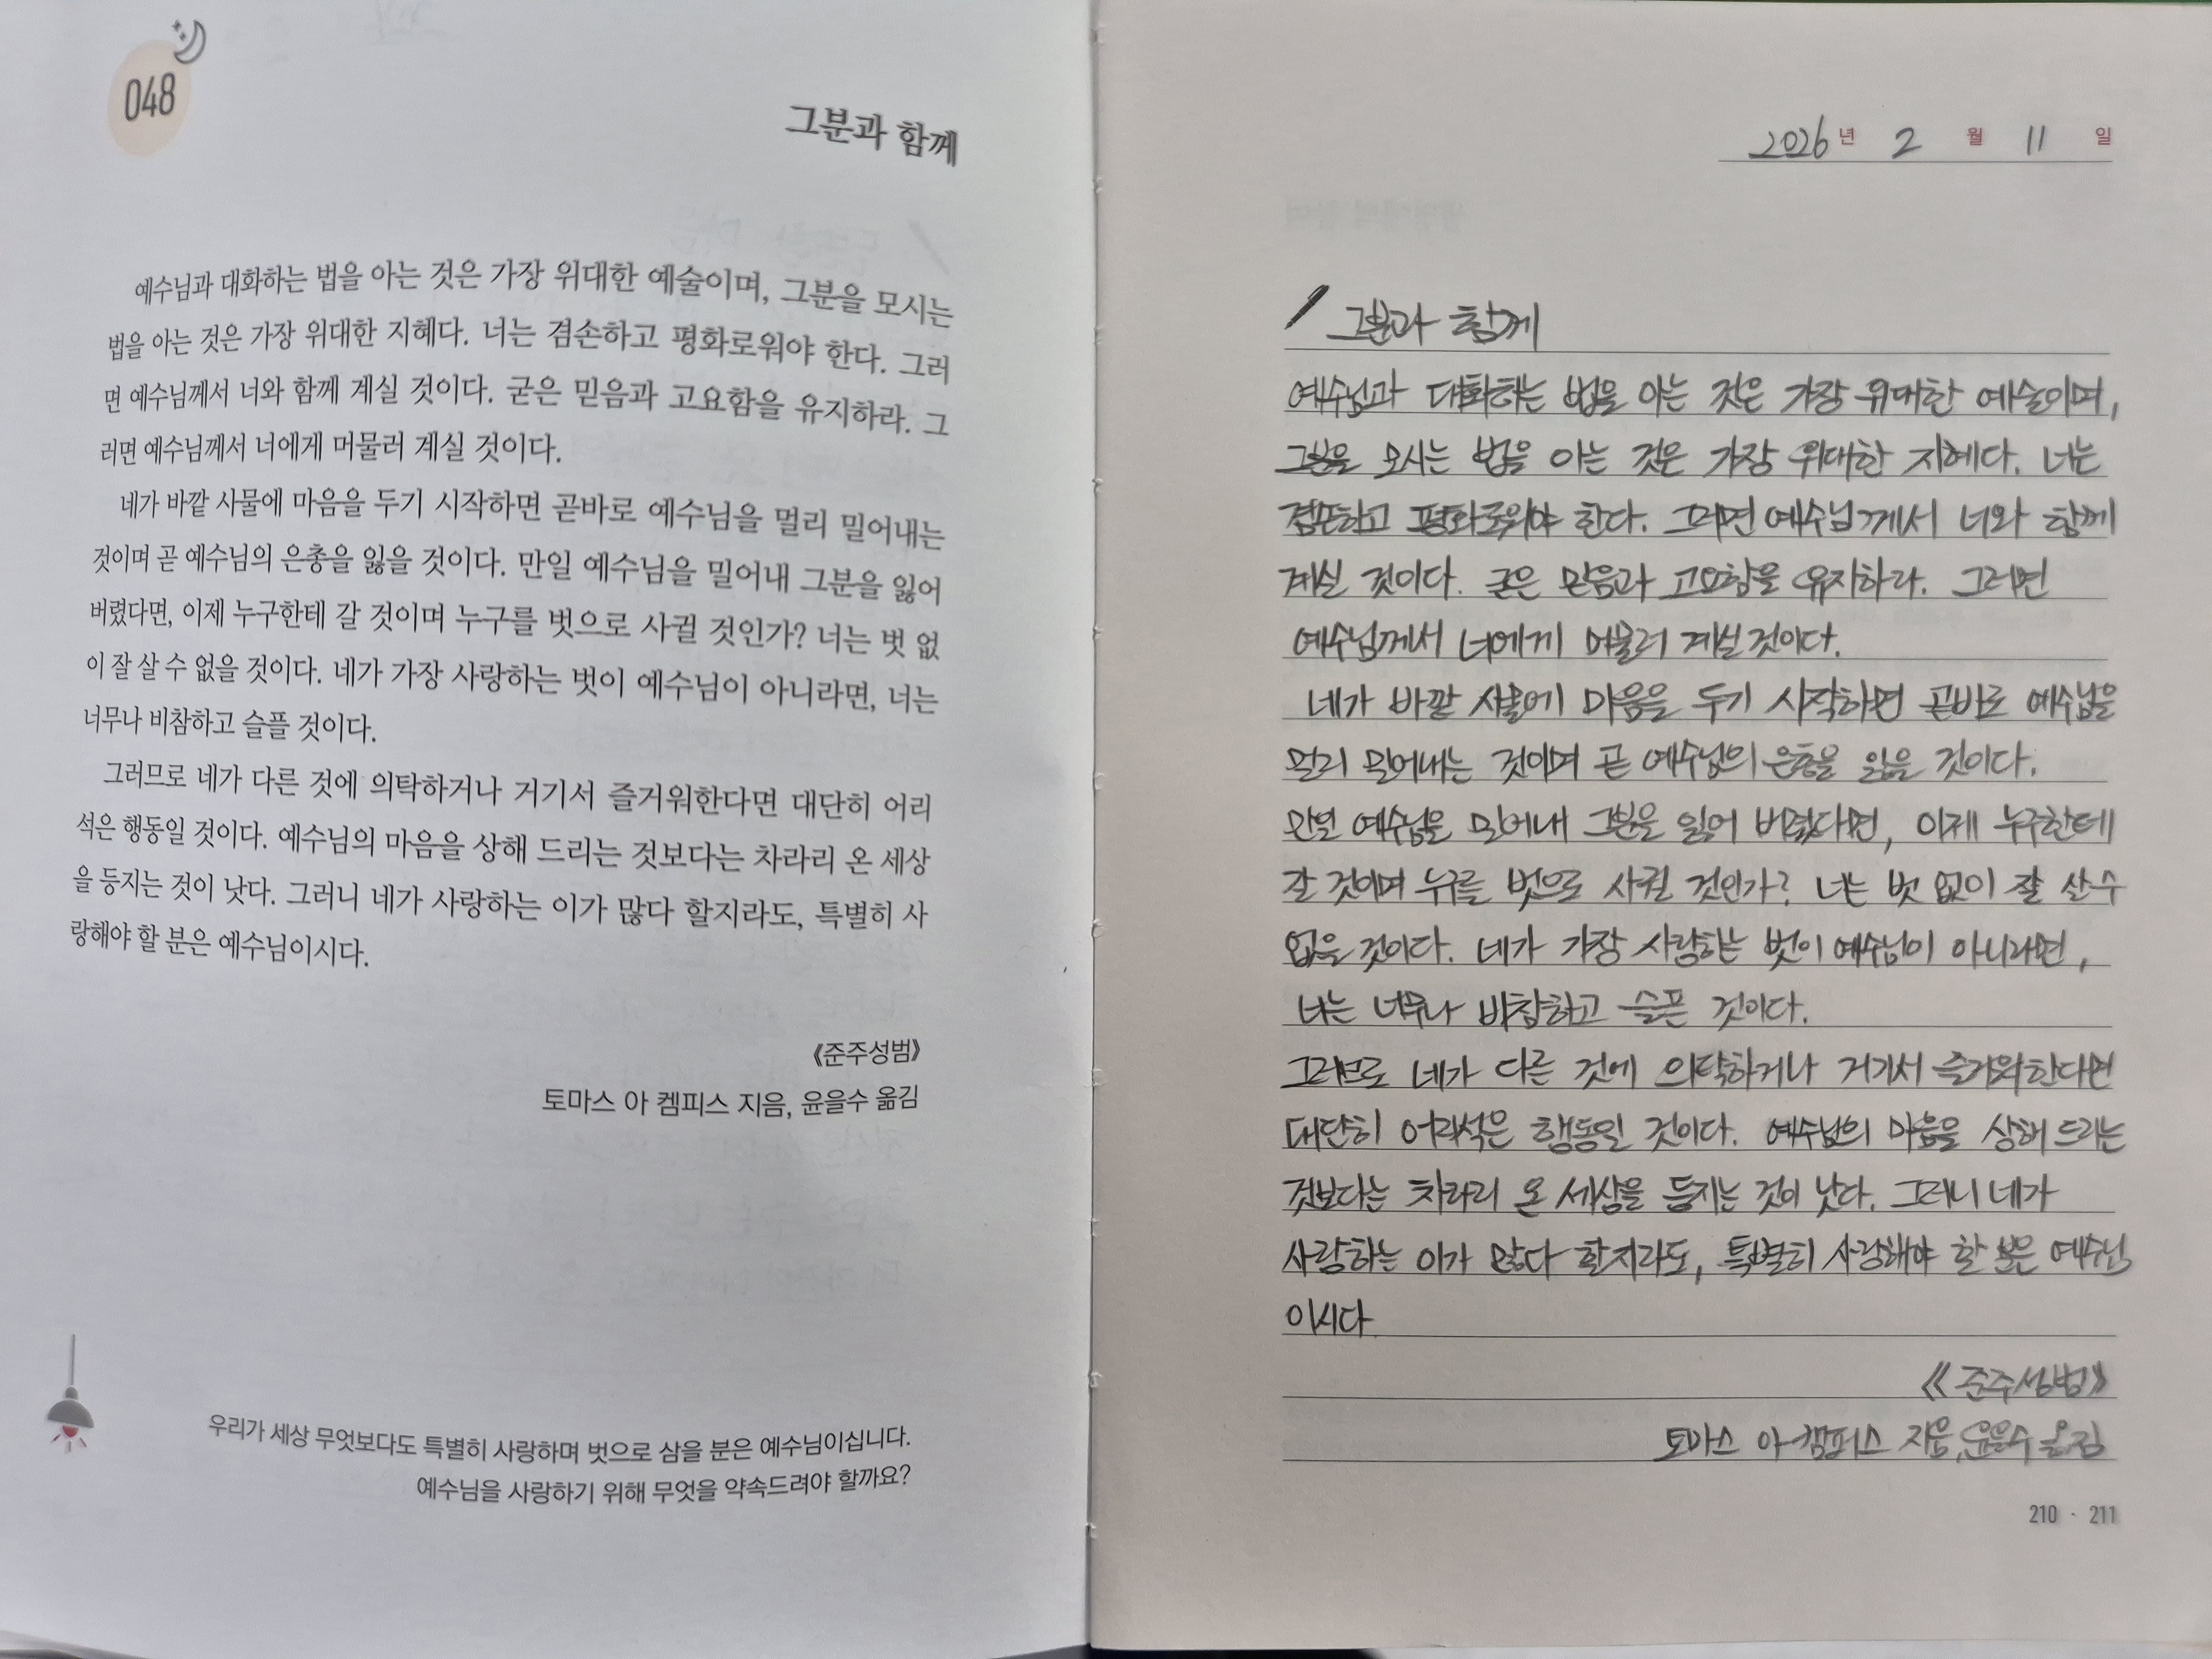 048
그분과 함께
예수님과 대화하는 법을 아는 것은 가장 위대한 예술이며, 그분을 모시는
법을 아는 것은 가장 위대한 지혜다. 너는 겸손하고 평화로워야 한다. 그러
면 예수님께서 너와 함께 계실 것이다. 굳은 믿음과 고요함을 유지하라. 그
러면 예수님께서 너에게 머물러 계실 것이다.
네가 바깥 사물에 마음을 두기 시작하면 곧바로 예수님을 멀리 밀어내는
것이며 곧 예수님의 은총을 잃을 것이다. 만일 예수님을 밀어내 그분을 잃어
버렸다면, 이제 누구한테 갈 것이며 누구를 벗으로 사귈 것인가? 너는 벗 없
이 잘 살 수 없을 것이다. 네가 가장 사랑하는 벗이 예수님이 아니라면, 너는
너무나 비참하고 슬플 것이다.
그러므로 네가 다른 것에 의탁하거나 거기서 즐거워한다면 대단히 어리
석은 행동일 것이다. 예수님의 마음을 상해 드리는 것보다는 차라리 온 세상
을 등지는 것이 낫다. 그러니 네가 사랑하는 이가 많다 할지라도, 특별히 사
랑해야 할 분은 예수님이시다.
《준주성범》
토마스 아 켐피스 지음, 윤을수 옮김
우리가 세상 무엇보다도 특별히 사랑하며 벗으로 삼을 분은 예수님이십니다.
예수님을 사랑하기 위해 무엇을 약속드려야 할까요?
2026년 2월 11일
그분과 함께
예수님과 대화하는 법을 아는 것은 가장 위대한 예술이며,
그분을 모시는 법을 아는 것은 가장 위대한 지혜다. 너는
겸손하고 평화로워야 한다. 그러면 예수님께서 너와 함께
계실 것이다. 굳은 믿음과 고요함을 유지하라. 그러면
예수님께서 너에게 머물러 계실 것이다.
네가 바깥 사물에 마음을 두기 시작하면 곧바로 예수님을
멀리 밀어내는 것이며 곧 예수님의 은총을 잃을 것이다.
만일 예수님을 밀어내 그분을 잃어 버렸다면, 이제 누구한테
갈 것이며 누구를 벗으로 사귈 것인가? 너는 벗 없이 잘 살 수
없을 것이다. 네가 가장 사랑하는 벗이 예수님이 아니라면,
너는 너무나 비참하고 슬픈 것이다.
그러므로 네가 다른 것에 의탁하거나 거기서 즐거워한다면
대단히 어리석은 행동일 것이다. 예수님의 마음을 상해 드리는
것보다는 차라리 온 세상을 등지는 것이 낫다. 그러니 네가
사랑하는 이가 많다 할지라도, 특별히 사랑해야 할 분은 예수님
이시다
《준주성범》
토마스 아 켐피스 지음, 윤을수 옮김
210 · 211